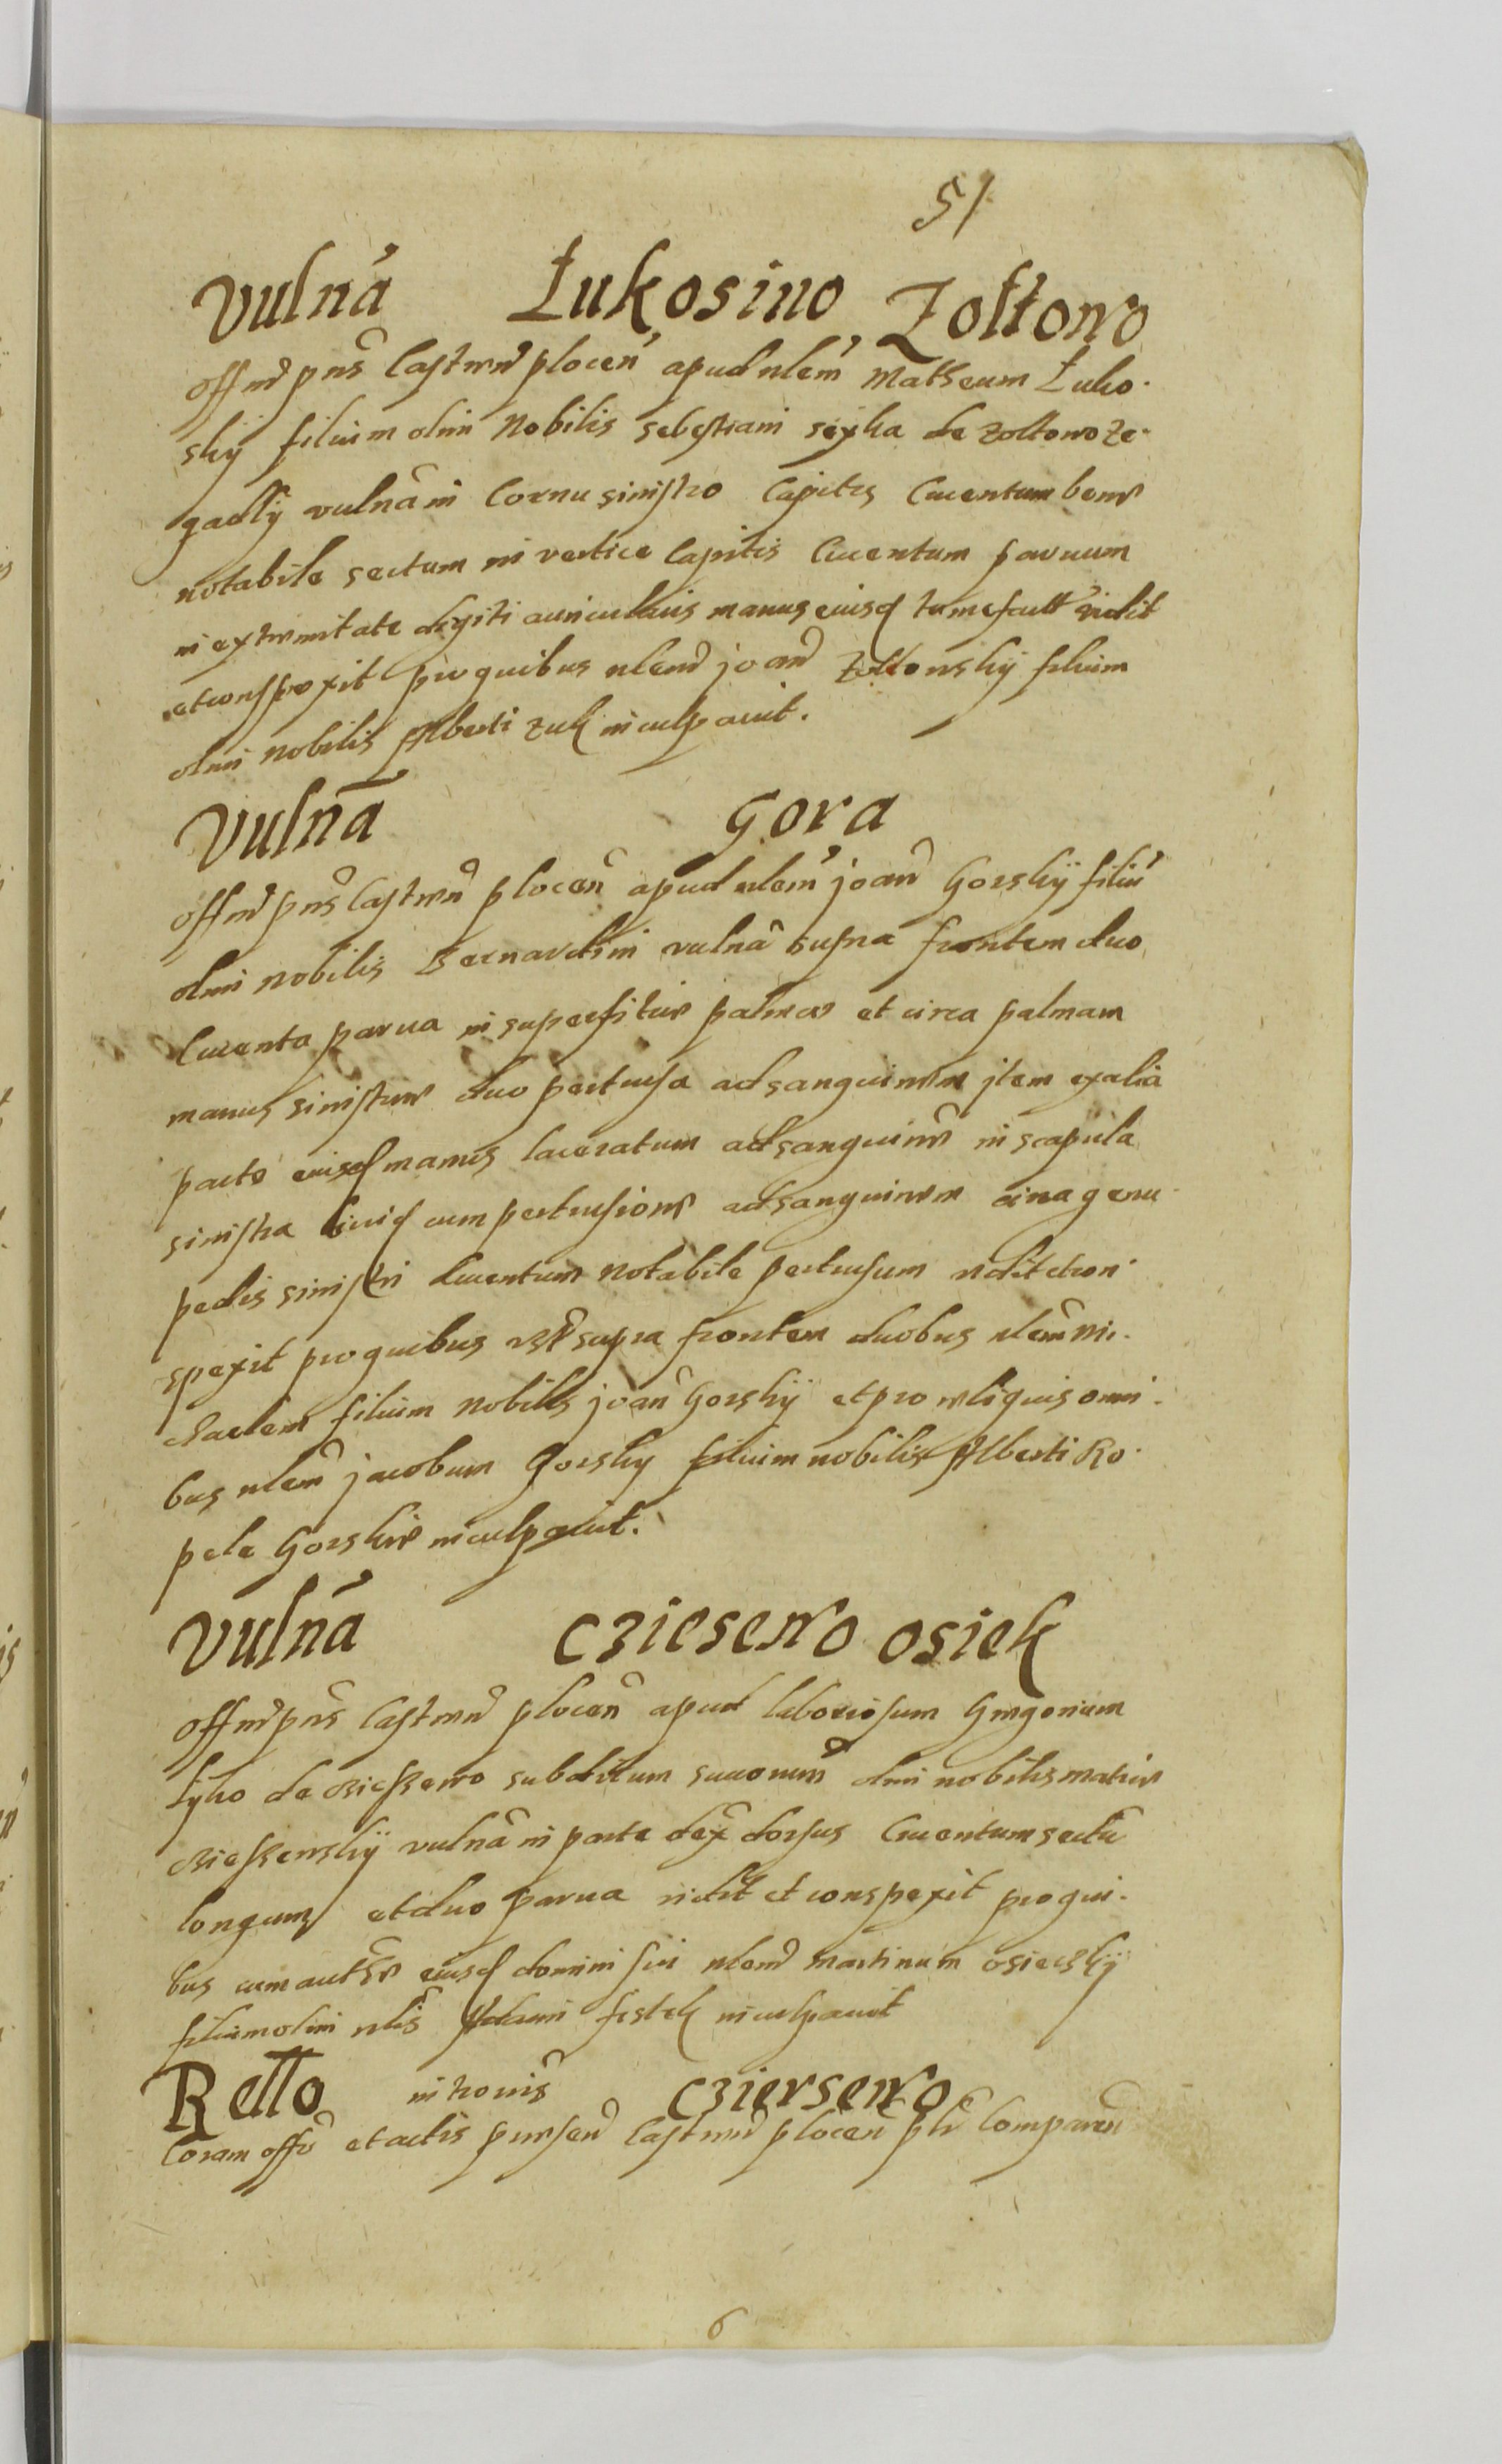 51
Vulnã Łukosino Zołtowo
Offm̃ pns̃ Castren̄ plocen̄ apud nlem̃ Matheum Łuko-
skÿ filium olim Nobilis sebestiani sÿxka de zoltowo ze-
gadlÿ vulnã in Cornu sinistro Capitis Cruentum bene
notabile sectum in vertice Capitis Cruentum paruum
in extremitate digiti auricularis manus eiusd tumefactũ vidit
et conspexit pro quibus nlem̃ joan̄ Zoltowskÿ filium
olim nobilis Alberti zuk inculpauit.
Vulnã Gora
Offm̃ pns̃ Castren̄ plocen̄ apud nlem̃ joan̄ Gorskÿ filiũ
olim nobilis Bernardini vulnã supra frontem duo
Cruenta parua in superficie palmae et circa palmam
manus sinistrae duo pertusa ad sanguinem jtem ex alia
parte eiusd manus laceratum ad sanguinẽ in scapula
sinistra cum pertusione ad sanguinem circa genu
pedis sinistri Cruentum notabile pertusum vidit et con-
spexit pro quibus supra frontem duobus nlem̃ Mi-
chaelem filium nobilis joan̄ Gorskÿ et pro reliquis omni-
bus nlem̃ jacobum Gorsky filium nobilis Alberti Ro-
pele Gorskie inculpauit.
Vulnã Cziesewo Osiek
Offm̃ pns̃ Castren̄ plocen̄ apud laboriosum Gregorium
Lyko de cziessewo subditum olim nobilis
cziessewskÿ vulnã in parte dex̃ dorsus Cruentum sectũ
longum et duo parua vidit et conspexit pro qui-
bus cum eiusd domini sui nlem̃ Martinum osieckÿ
filium olim nlis̃ Adami inculpauit
Retto Cziersewo
Coram offõ et actis presen̄ Castren̄ plocen̄ plr̃ Comparen̄
6